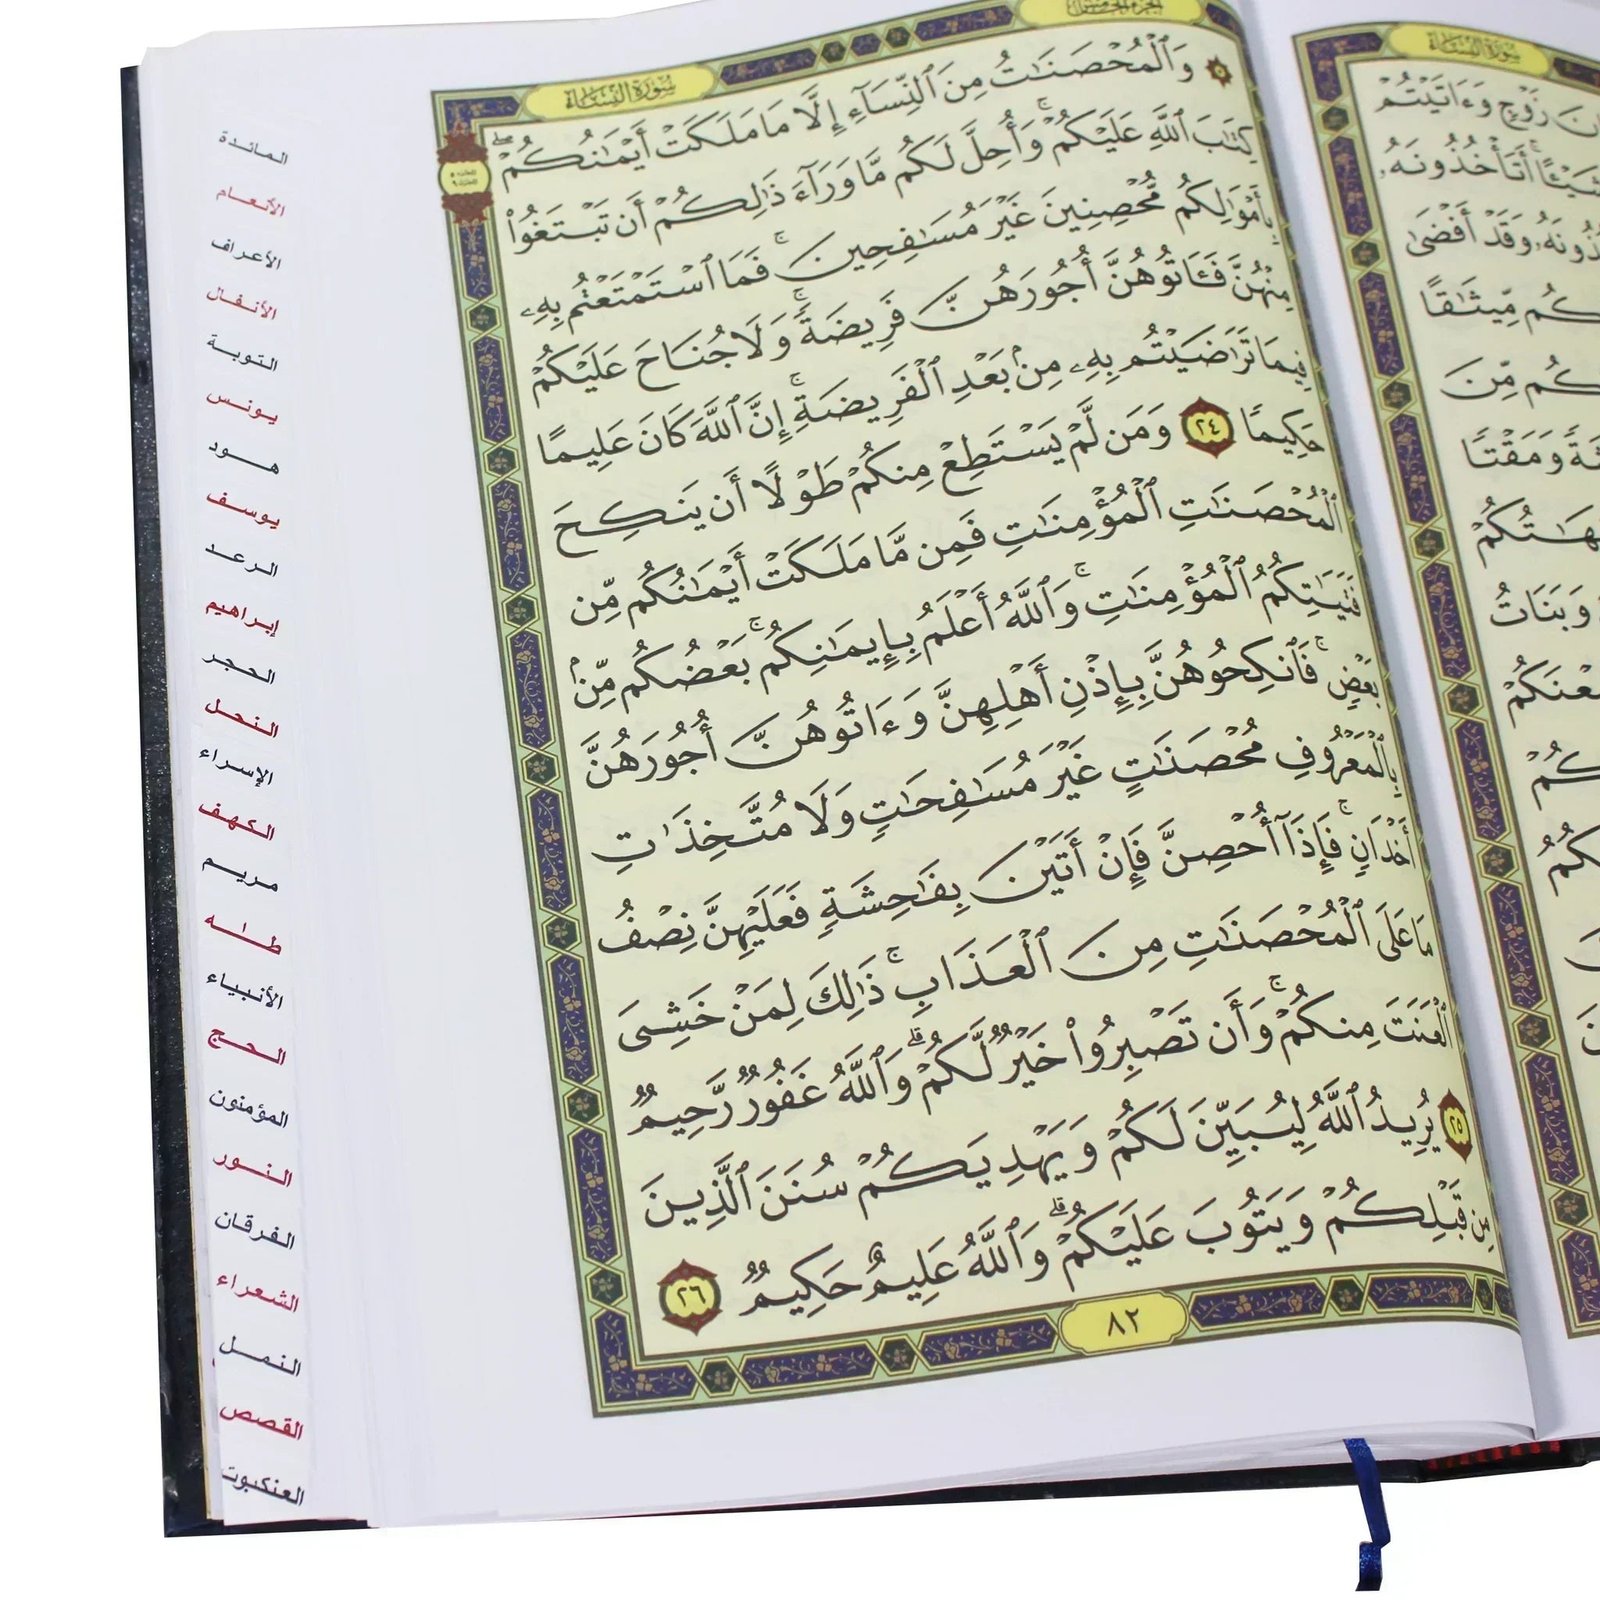 سورة النساء
وَٱلْمُحْصَنَٰتُ مِنَ ٱلنِّسَآءِ إِلَّا مَا مَلَكَتْ أَيْمَٰنُكُمْ ۖ
كِتَٰبَ ٱللَّهِ عَلَيْكُمْ ۚ وَأُحِلَّ لَكُم مَّا وَرَآءَ ذَٰلِكُمْ أَن تَبْتَغُوا۟
بِأَمْوَٰلِكُم مُّحْصِنِينَ غَيْرَ مُسَٰفِحِينَ ۚ فَمَا ٱسْتَمْتَعْتُم بِهِۦ
مِنْهُنَّ فَـَٔاتُوهُنَّ أُجُورَهُنَّ فَرِيضَةً ۚ وَلَا جُنَاحَ عَلَيْكُمْ
فِيمَا تَرَٰضَيْتُم بِهِۦ مِنۢ بَعْدِ ٱلْفَرِيضَةِ ۚ إِنَّ ٱللَّهَ كَانَ عَلِيمًا
حَكِيمًا ٢٤ وَمَن لَّمْ يَسْتَطِعْ مِنكُمْ طَوْلًا أَن يَنكِحَ
ٱلْمُحْصَنَٰتِ ٱلْمُؤْمِنَٰتِ فَمِن مَّا مَلَكَتْ أَيْمَٰنُكُم مِّن
فَتَيَٰتِكُمُ ٱلْمُؤْمِنَٰتِ ۚ وَٱللَّهُ أَعْلَمُ بِإِيمَٰنِكُم ۚ بَعْضُكُم مِّنۢ
بَعْضٍ ۚ فَٱنكِحُوهُنَّ بِإِذْنِ أَهْلِهِنَّ وَءَاتُوهُنَّ أُجُورَهُنَّ
بِٱلْمَعْرُوفِ مُحْصَنَٰتٍ غَيْرَ مُسَٰفِحَٰتٍ وَلَا مُتَّخِذَٰتِ
أَخْدَانٍ ۚ فَإِذَآ أُحْصِنَّ فَإِنْ أَتَيْنَ بِفَٰحِشَةٍ فَعَلَيْهِنَّ نِصْفُ
مَا عَلَى ٱلْمُحْصَنَٰتِ مِنَ ٱلْعَذَابِ ۚ ذَٰلِكَ لِمَنْ خَشِىَ
ٱلْعَنَتَ مِنكُمْ ۚ وَأَن تَصْبِرُوا۟ خَيْرٌ لَّكُمْ ۗ وَٱللَّهُ غَفُورٌ رَّحِيمٌ
٢٥ يُرِيدُ ٱللَّهُ لِيُبَيِّنَ لَكُمْ وَيَهْدِيَكُمْ سُنَنَ ٱلَّذِينَ
مِن قَبْلِكُمْ وَيَتُوبَ عَلَيْكُمْ ۗ وَٱللَّهُ عَلِيمٌ حَكِيمٌ ٢٦
٨٢
المائدة
الأنعام
الأعراف
الأنفال
التوبة
يونس
هود
يوسف
الرعد
إبراهيم
الحجر
النحل
الإسراء
الكهف
مريم
طه
الأنبياء
الحج
المؤمنون
النور
الفرقان
الشعراء
النمل
القصص
العنكبوت
سورة النساء
زَوْجٍ وَءَاتَيْتُمْ
شَيْـًٔا ۚ أَتَأْخُذُونَهُۥ
وَقَدْ أَفْضَىٰ
مِّيثَٰقًا
مِّنَ
وَمَقْتًا
وَبَنَاتُ